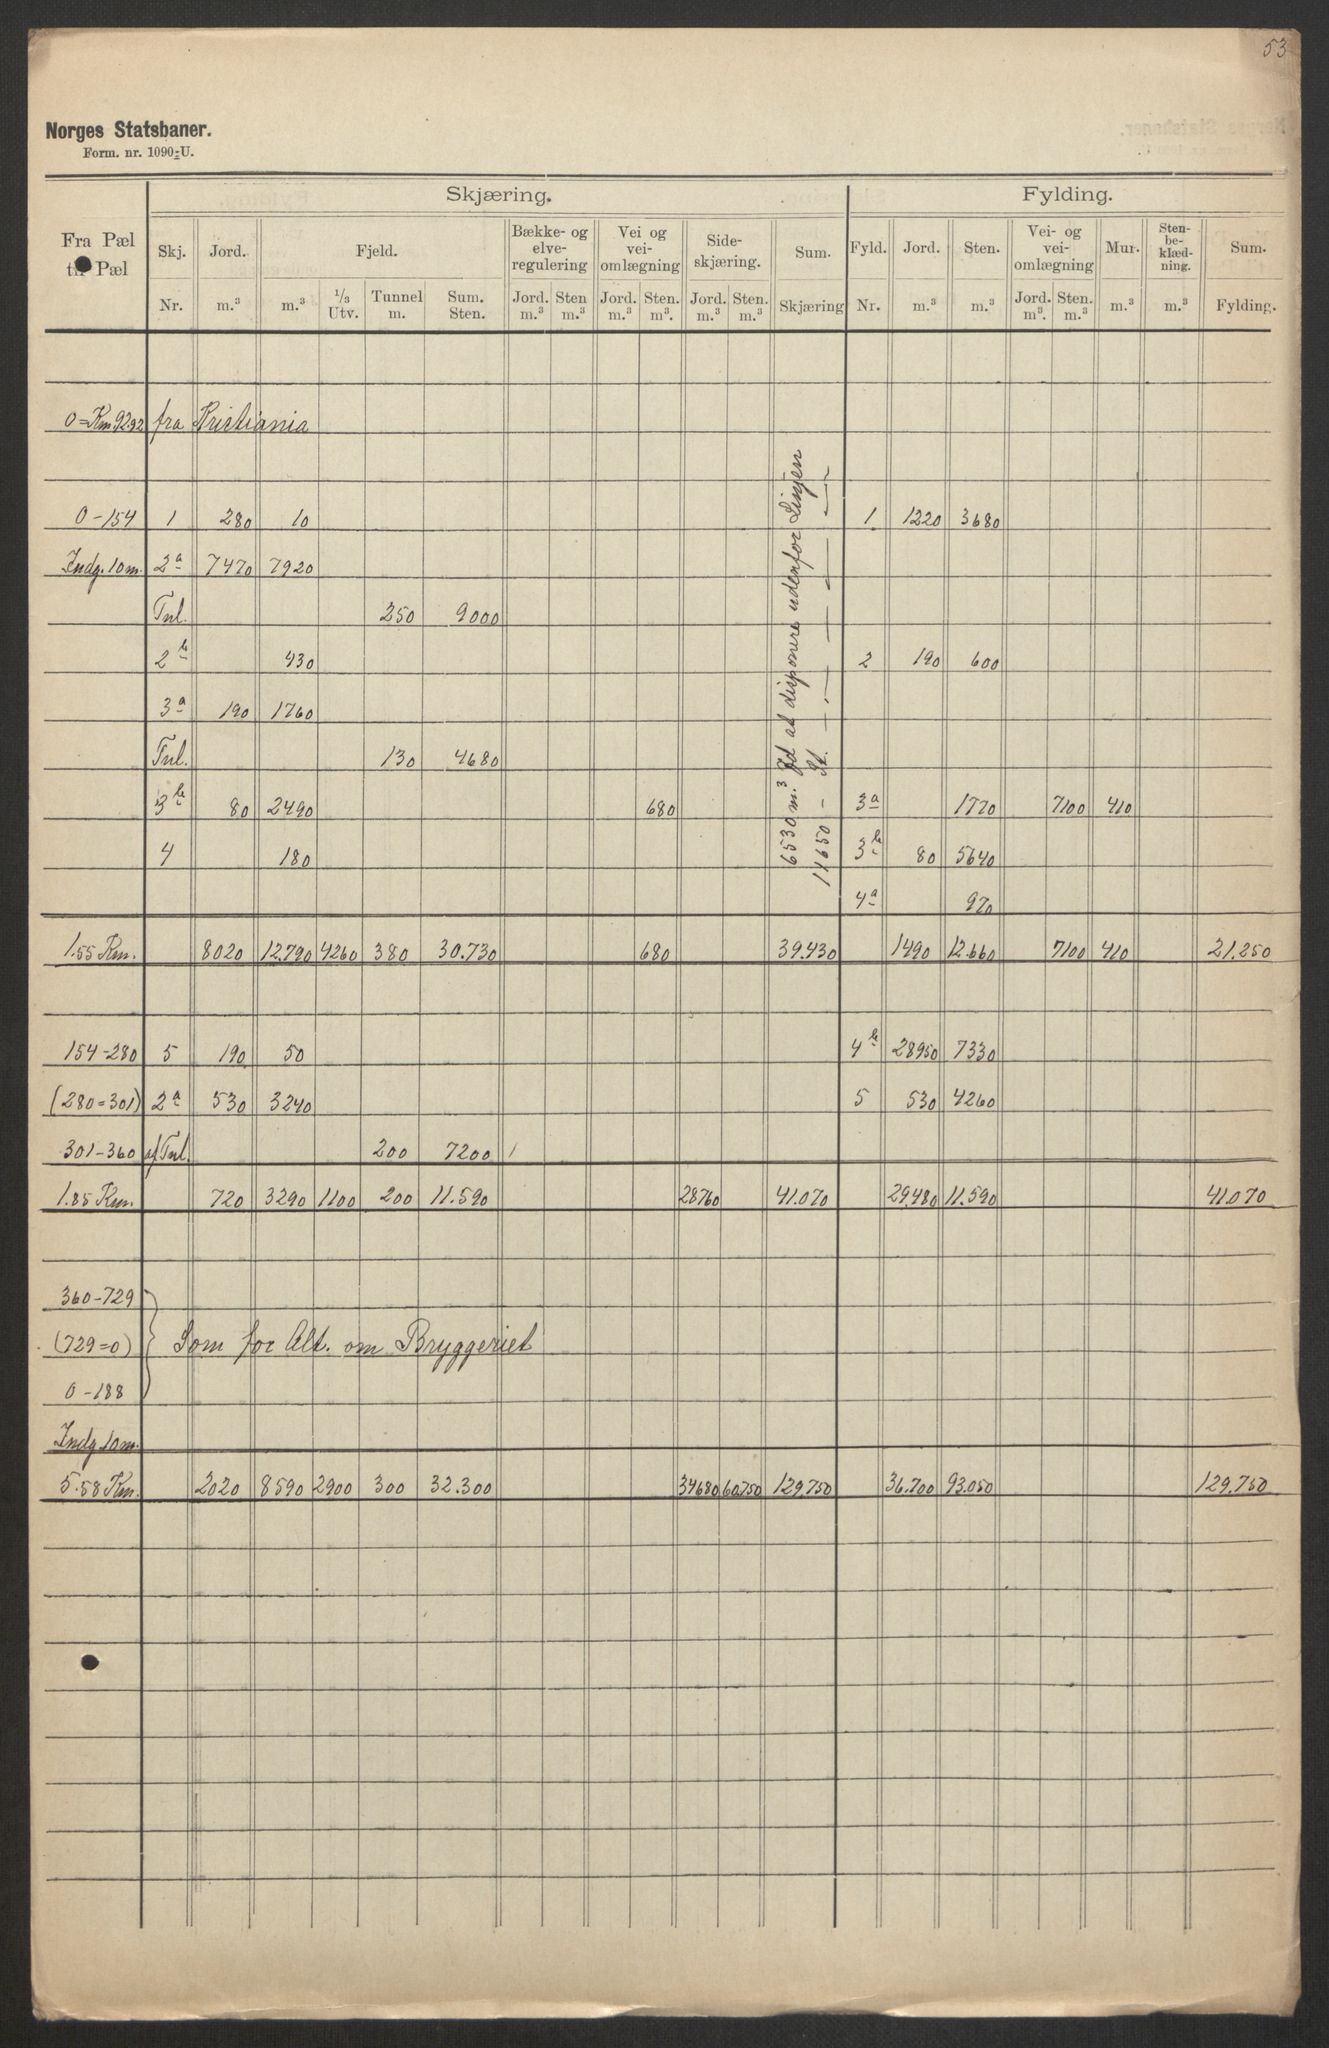 53
Norges Statsbaner.
Form. nr. 1090-U.
Skjæring. Fylding.
Fra Pæl til Pæl Skj. Nr. Jord. m.³ Fjeld. m.³ 1/3 Utv. Tunnel m. Sum. Sten. Bække- og elve-regulering Jord. m.³ Sten m.³ Vei og vei-omlægning Jord. m.³ Sten. m.³ Side-skjæring. Jord. m.³ Sten. m.³ Sum. Skjæring Fyld. Nr. Jord. m.³ Sten. m.³ Vei- og vei-omlægning Jord. m.³ Sten. m.³ Mur. m.³ Sten-be-klæd-ning. m.³ Sum. Fylding.
0=Km.92.92 fra Kristiania
0-154 1 280 10 1 1220 3680
Indg. 10m. 2a 7470 7920
Tnl. 250 9000
2b 430 2 190 600
3a 190 1760
Tnl. 130 4680
3b 80 2490 680 3a 1770 7100 410
4 180 3b 80 5640
4a 970
6530 m.³ Jd at disponere udenfor Linjen
11650 - St. - " - - - " -
1.55 Km. 8020 12.790 4260 380 30.730 680 39.430 1490 12.660 7100 410 21.250
154-280 5 190 50 4b 28950 7330
(280=301) 2a 530 3240 5 530 4260
301-360 af Tnl. 200 7200
1.85 Km. 720 3290 1100 200 11.590 28760 41.070 29.480 11.590 41.070
360-729
(729=0) Som for Alt. om Bryggeriet
0-188
Indg 10m.
5.58 Km. 2020 8590 2900 300 32.300 34680 60.750 129.750 36.700 93.050 129.750